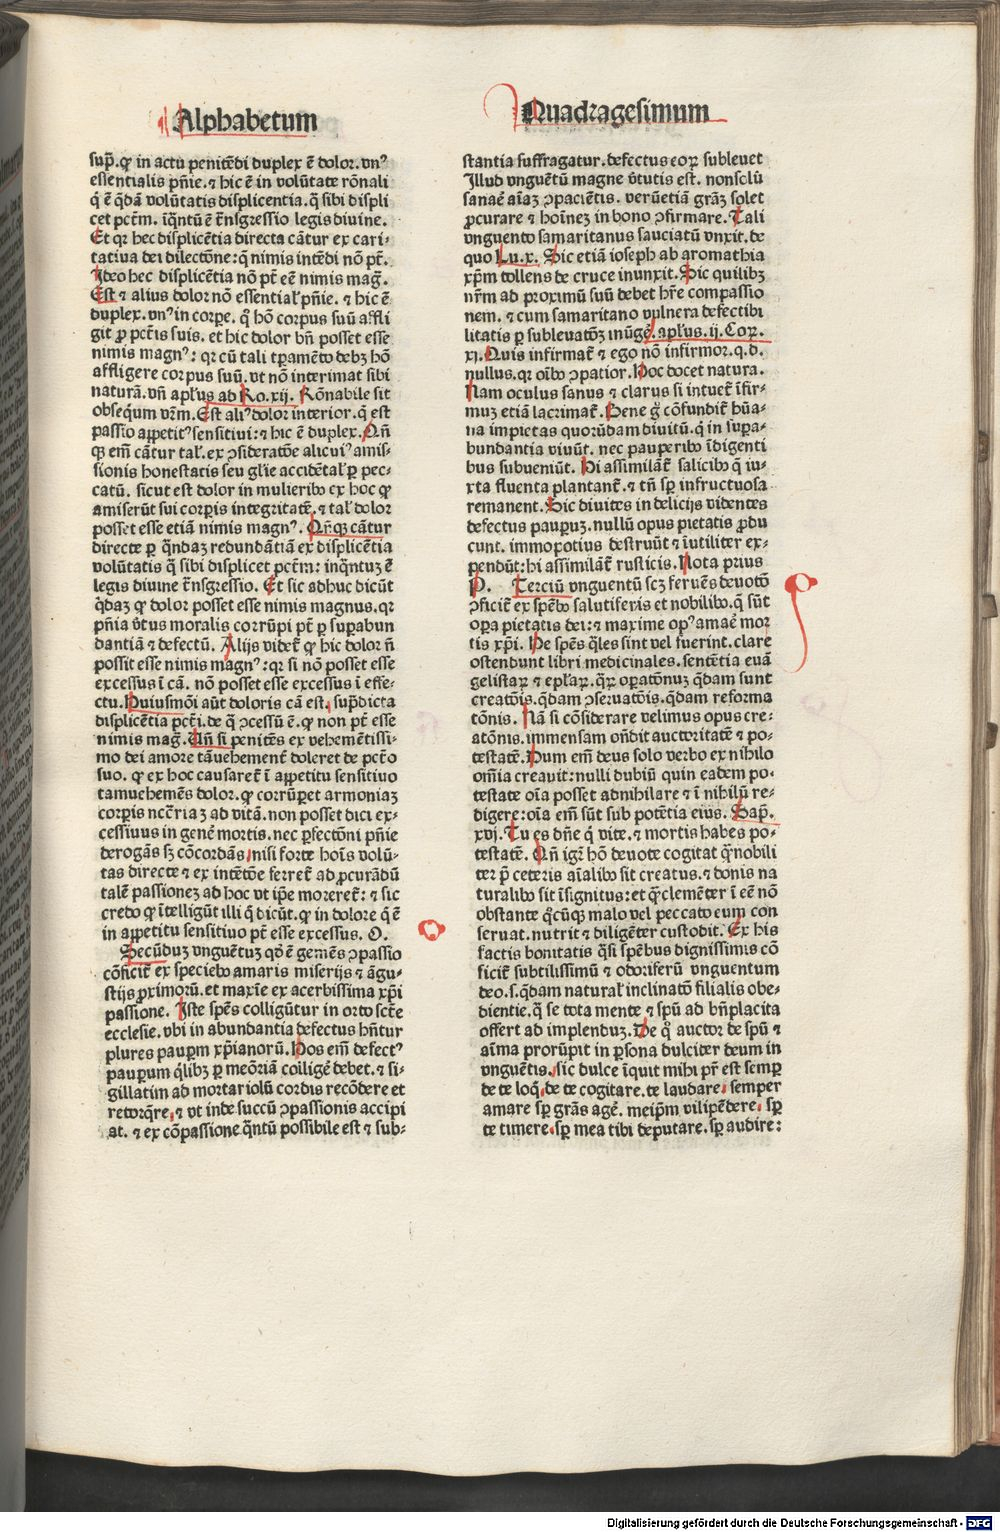 Alphabetum
sup̄. qꝛ in actu penitēdi duplex ē dolor. vnꝰ
essentialis pn̄ie. ⁊ hic ē in volūtate rōnali
q̇ ē q̄dā volūtatis displicentia. q̄ sibi displi
cet pctm̄. īq̄ntū ē trn̄sgressio legis diuine.
Et qꝛ hec displicētia directa cātur ex cari-
tatiua dei dilectōne: q̄ nimis intēdi nō pt̄.
Ideo hec displicētia nō pt̄ eē nimis maḡ.
Est ⁊ alius dolor nō essential' pn̄ie. ⁊ hic ē
duplex. vnꝰ in corpe. q̇ hō corpus suū affli
git ꝓ pctīs suis. et hic dolor bn̄ posset esse
nimis magnꝰ: qꝛ cū tali tꝑamēto debꝫ hō
affligere corpus suū. vt nō interimat sibi
naturā. vn̄ apl'us ad Ro. xij. Rōnabile sit
obseqͥum vr̄m. Est aliꝰ dolor interior. q̇ est
passio appetitꝰ sensitiui: ⁊ hic ē duplex. Qn̄
qꝫ em̄ cātur tal'. ex ↄsideratōe alicuiꝰ amis-
sionis honestatis seu gl'ie accidētal' ꝑ pec-
catū. sicut est dolor in mulieribꝰ ex hoc qꝛ
amiserūt sui corꝑis integritatē. ⁊ tal' dolor
posset esse etiā nimis magnꝰ. Qn̄qꝫ cātur
directe ꝑ q̄ndaꝫ redundātiā ex displicētia
volūtatis q̄ sibi displicet pctm̄: inq̄ntuꝫ ē
legis diuine trn̄sgressio. Et sic adhuc dicūt
q̇daꝫ qꝛ dolor posset esse nimis magnus. qꝛ
pn̄ia v̄tus moralis corrūpi pt̄ ꝑ suꝑabun
dantiā ⁊ defectū. Alijs videt̄ qꝛ hic dolor n̄
possit esse nimis magnꝰ: qꝛ si nō posset esse
excessus ī cā. nō posset esse excessus ī effe-
ctu. Huiusmōi aūt doloris cā est, sup̄dicta
displicētia pctī. de q̄ ↄcessū ē. qꝛ non pt̄ esse
nimis maḡ. Qn̄ si penitēs ex vehemētissi-
mo dei amore tāuehement̄ doleret de pctō
suo. qꝛ ex hoc causaret̄ ī appetitu sensitiuo
tamuehemēs dolor. qꝛ corrūꝑet armoniaꝫ
corꝑis nccr̄iaꝫ ad vitā. non posset dici ex-
cessiuus in genē mortis. nec ꝑfectōni pn̄ie
derogās sꝫ concordās, nisi forte hoīs volū-
tas directe ⁊ ex intētōe ferret̄ ad ꝓcurādū
talē passioneꝫ ad hoc vt ip̄e moreret̄: ⁊ sic
credo qꝛ ītelligūt illi q̇ dicūt. qꝛ in dolore q̇ ē
in appetitu sensitiuo pt̄ esse excessus. O.
Secūduꝫ vnguētuꝫ qd̄ ē gemēs ↄpassio
cōficit̄ ex speciebꝰ amaris miserijs ⁊ āgu-
stijs ꝓximorū. et maxīe ex acerbissima xp̄i
passione. Iste spēs colligūtur in orto scte̅
ecclesie. vbi in abundantia defectus hn̄tur
plures pauꝑm xp̄ianorū. Hos em̄ defectꝰ
pauꝑum q̇libꝫ ꝑ meōriā colligē debet. ⁊ si-
gillatim ad mortariolū cordis recōdere et
retorq̄re, ⁊ vt inde succū ↄpassionis accipi
at. ⁊ ex cōpassione q̄ntū possibile est ⁊ sub-
O
Quadragesimum
stantia suffragatur. defectus eoꝝ subleuet
Illud vnguētū magne v̄tutis est. nonsolū
sanaē aīaꝫ ↄpaciētis. verūetiā grāꝫ solet
ꝓcurare ⁊ hoīneꝫ in bono ↄfirmare. Tali
vnguento samaritanus sauciatū vnxit. de
quo Lu. x. Sic etiā ioseph ab aromathia
xp̄m tollens de cruce inunxit. Sic quilibꝫ
nr̄m ad proximū suū debet hr̄e compassio
nem. ⁊ cum samaritano vulnera defectibi
litatis ꝑ subleuatōꝫ inūgē. apl'us. ij. Coꝝ.
xj. Quis infirmat̄ ⁊ ego nō infirmor. q. d.
nullus. qꝛ oībꝰ ↄpatior. Hoc docet natura.
Nam oculus sanus ⁊ clarus si intuet̄ īfir-
muꝫ etiā lacrimat̄. Bene g̊ cōfundit̄ hūa-
na impietas quorūdam diuitū. q̇ in suꝑa-
bundantia viuūt. nec pauperibꝰ īdigenti
bus subueniūt. Hi assimilāt̄ salicibꝰ q̄ iu-
xta fluenta plantant̄. ⁊ tn̄ sꝑ infructuosa
remanent. Sic diuites in delicijs videntes
defectus pauꝑuꝫ. nullū opus pietatis ꝓdu
cunt. immopotius destruūt ⁊ īutiliter ex-
pendūt: hi assimilāt̄ rusticis. Nota prius
P. Terciū vnguentū scꝫ feruēs deuotō
ↄficit̄ ex spēbꝰ salutiferis et nobilibꝰ. q̄ sūt
oꝑa pietatis dei: ⁊ maxime opꝰ amaē mor
tis xp̄i. He spēs q̄les sint vel fuerint. clare
ostendunt libri medicinales. sentētia euā
gelistaꝝ ⁊ epl'aꝝ. q̄ꝝ oꝑatōnuꝫ q̄dam sunt
creatōis. q̄dam ↄseruatōis. q̄dam reforma
tōnis. Nā si cōsiderare velimus opus cre-
atōnis. immensam on̄dit auctoritatē ⁊ po-
testatē. Dum em̄ deus solo verbo ex nihilo
om̄ia creauit: nulli dubiū quin eadem po-
testate oīa posset adnihilare ⁊ ī nihilū re-
digere: oīa em̄ sūt sub potētia eius. Sap̄.
xvj. Tu es dn̄e q̇ vite. ⁊ mortis habes po-
testatē. Qn̄ igr̄ hō deuote cogitat q̄ꝫnobili
ter p̄ ceteris aīalibꝰ sit creatus. ⁊ donis na
turalibꝰ sit īsignitus: et q̄ꝫclemēter ī eē nō
obstante q̇cūqꝫ malo vel peccato eum con
seruat. nutrit ⁊ diligēter custodit. Ex his
factis bonitatis q̄si spēbus dignissimis cō
ficit̄ subtilissimū ⁊ odoriferū vnguentum
deo. s. q̄dam natural' inclinatō filialis obe-
dientie. q̄ se tota mente ⁊ spū ad bn̄placita
offert ad implenduꝫ. De q̇ auctor de spū ⁊
aīma prorūpit in ꝑsona dulciter deum in
vnguētis, sic dulce īquit mihi pr̄ est semꝑ
de te loq̇, de te cogitare. te laudare, semper
amare sꝑ grās agē. meip̄m vilipēdere, sꝑ
te timere, sꝑ mea tibi deputare. sꝑ audire:
P
Digitalisierung gefördert durch die Deutsche Forschungsgemeinschaft - DFG